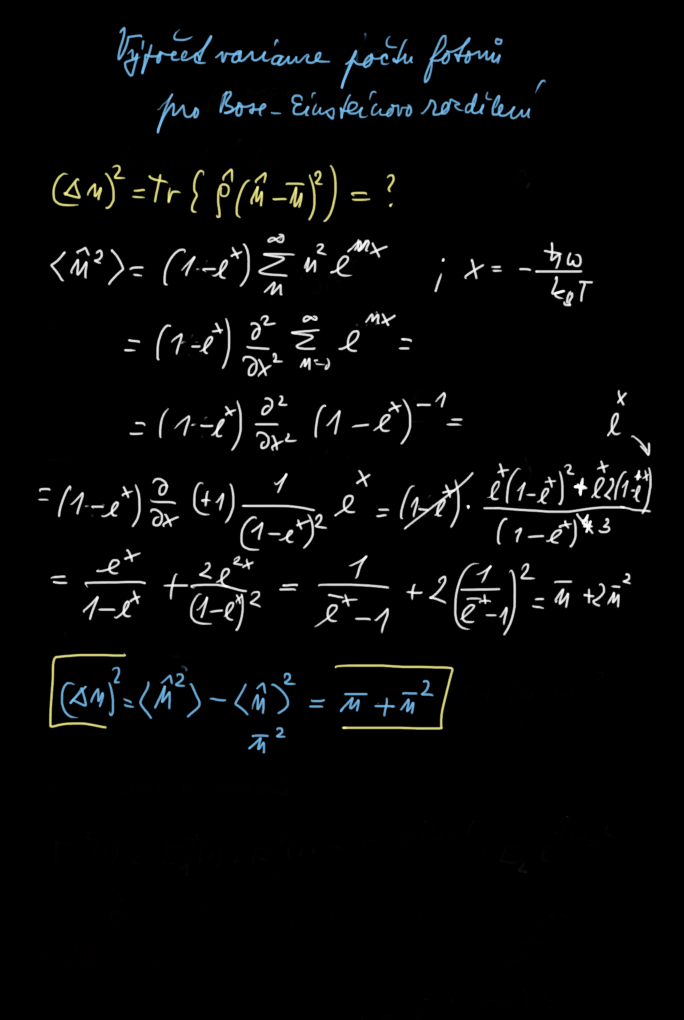 Výpočet variance počtu fotonů
pro Bose-Einsteinovo rozdělení
(Δn)² = Tr{ρ̂(n̂-n̄)²) = ?
⟨n̂²⟩ = (1-eˣ) ∑_n^∞ n² e^{nx} ; x = - ħω/(k_B T)
= (1-eˣ) ∂²/∂x² ∑_{n=0}^∞ e^{nx} =
= (1-eˣ) ∂²/∂x² (1-eˣ)⁻¹ =
eˣ
= (1-eˣ) ∂/∂x (+1) 1/(1-eˣ)² eˣ = (1-eˣ) · (eˣ(1-eˣ)² + eˣ2(1-eˣ)eˣ)/(1-eˣ)^{4 3}
= eˣ/(1-eˣ) + 2e²ˣ/(1-eˣ)² = 1/(e⁻ˣ-1) + 2(1/(e⁻ˣ-1))² = n̄ + 2n̄²
(Δn)² = ⟨n̂²⟩ - ⟨n̂⟩² = n̄ + n̄²
n̄²